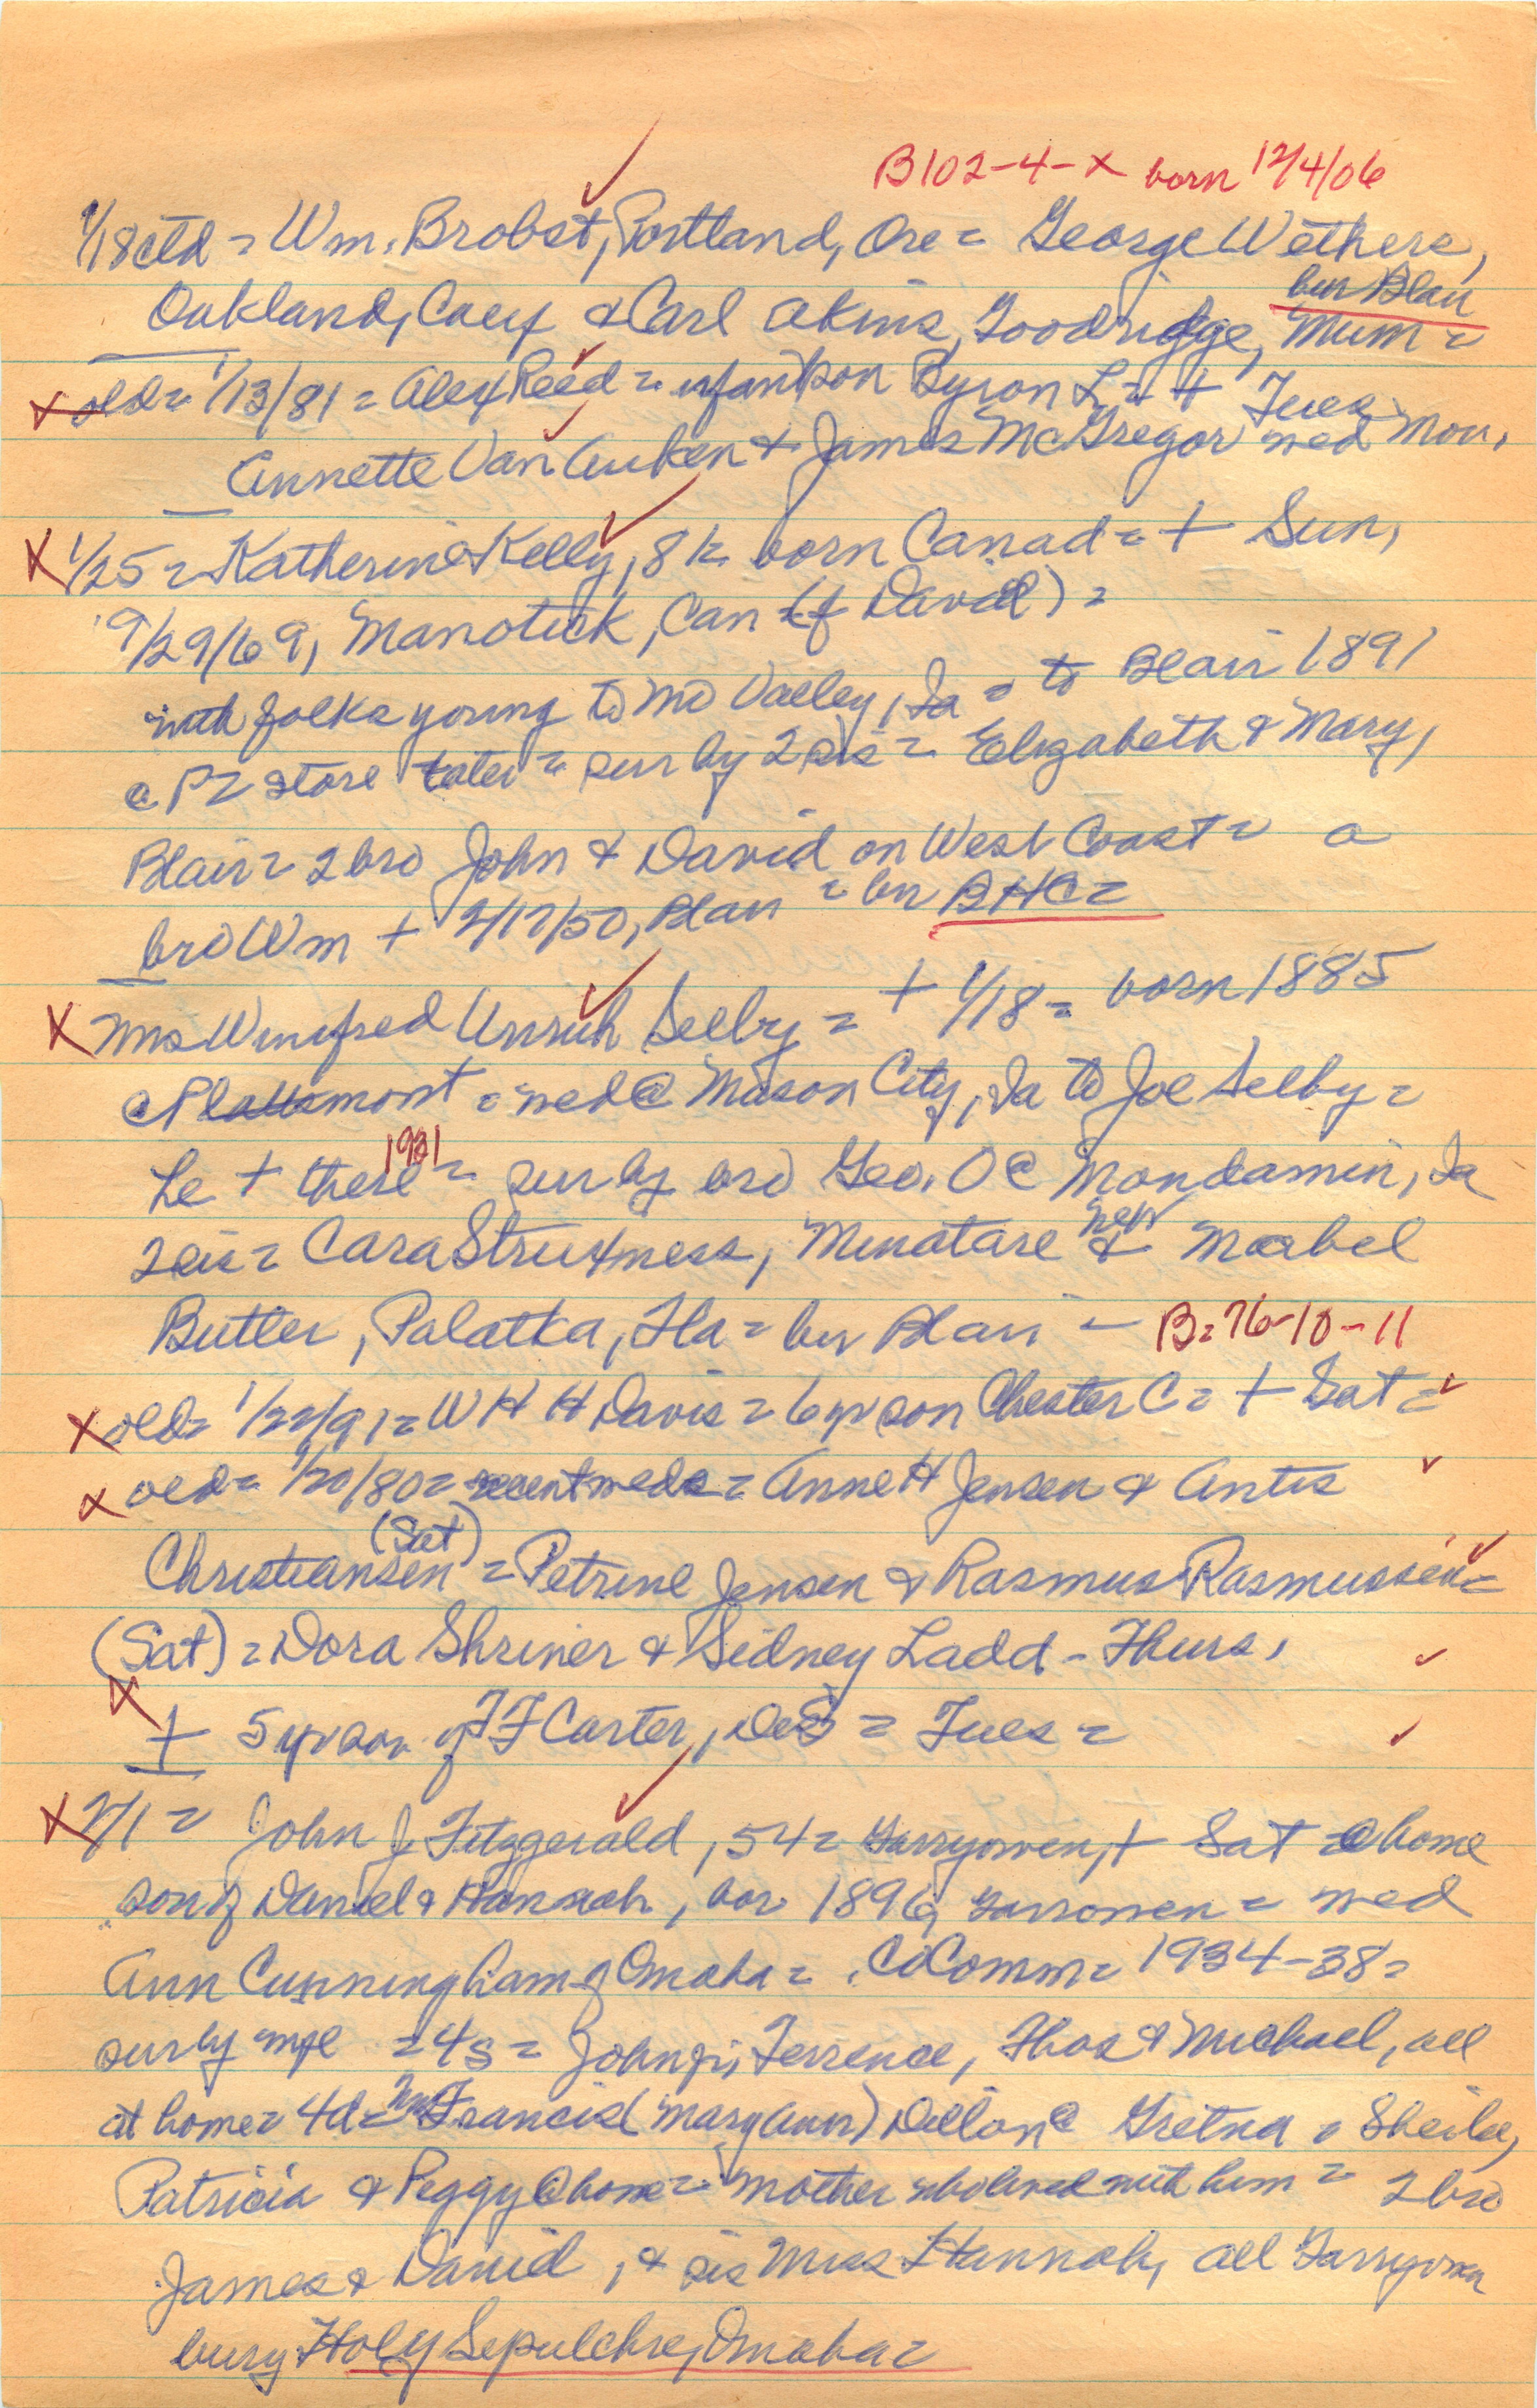 B102-4-X born 12/4/06
1/18ctd = Wm. Brobst, Portland, Ore = George Wethers,
Oakland, & Carl Akins, Goodridge, Minn =
bur Blair
old = 1/13/81 = Alex Reed = infant son Byron L = + Tues
Annette Van Auken & James McGregor wed Mon.
X 1/25 = Katherine Kelly, 81 = born Canad = + Sun,
9/29/69, Manotick, Can (f David) =
with folks young to Mo Valley, Ia = to Blair 1891
@ P2 store later = sur by 2 sis = Elizabeth & Mary,
Blair = 2 bro John & David on West Coast = a
bro Wm + 2/17/50, Blair = bur BHC =
X Mrs Winifred Unruh Selby = + 1/18 = born 1885
@ Plattsmont = wed @ Mason City, Ia to Joe Selby =
he + there 1931 = sur by bro Geo. O @ Mondamin, Ia
2 sis = Cara Struxness, Minatare Neb & Mabel
Butler, Palatka, Fla = bur Blair = B=76-10-11
X old = 1/22/91 = W H H Davis = 6 yr son Chester C = + Sat =
X old = 1/20/80 = recent weds = Anne H Jensen & Antis
Christiansen (Sat) = Petrine Jensen & Rasmus Rasmussen =
(Sat) = Dora Shriner & Sidney Ladd - Thurs,
X + 5 yr son of F F Carter, DeS = Tues =
X 2/1 = John J Fitzgerald, 54 = Garryowen, + Sat @ home
son of Daniel & Hannah, bor 1896, Garrowen = wed
Ann Cunningham of Omaha = CoComm = 1934-38 =
sur by wife = 4s = John jr, Terrence, Thos & Michael, all
at home = 4d = Mrs Francis (Mary Ann) Dillon @ Gretna = Sheila,
Patricia & Peggy @ home = mother who lived with him = 2 bro
James & David, & sis Miss Hannah, all Garryowen
bury Holy Sepulchre, Omaha =